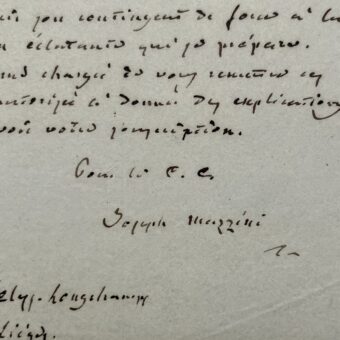 contingent de force à la
éclatante qui se prépare.
chargé de vous remettre ces
autorisé à donner des explications
votre souscription.
Pour le C. C.
Joseph Mazzini
Longchamps
Liége.